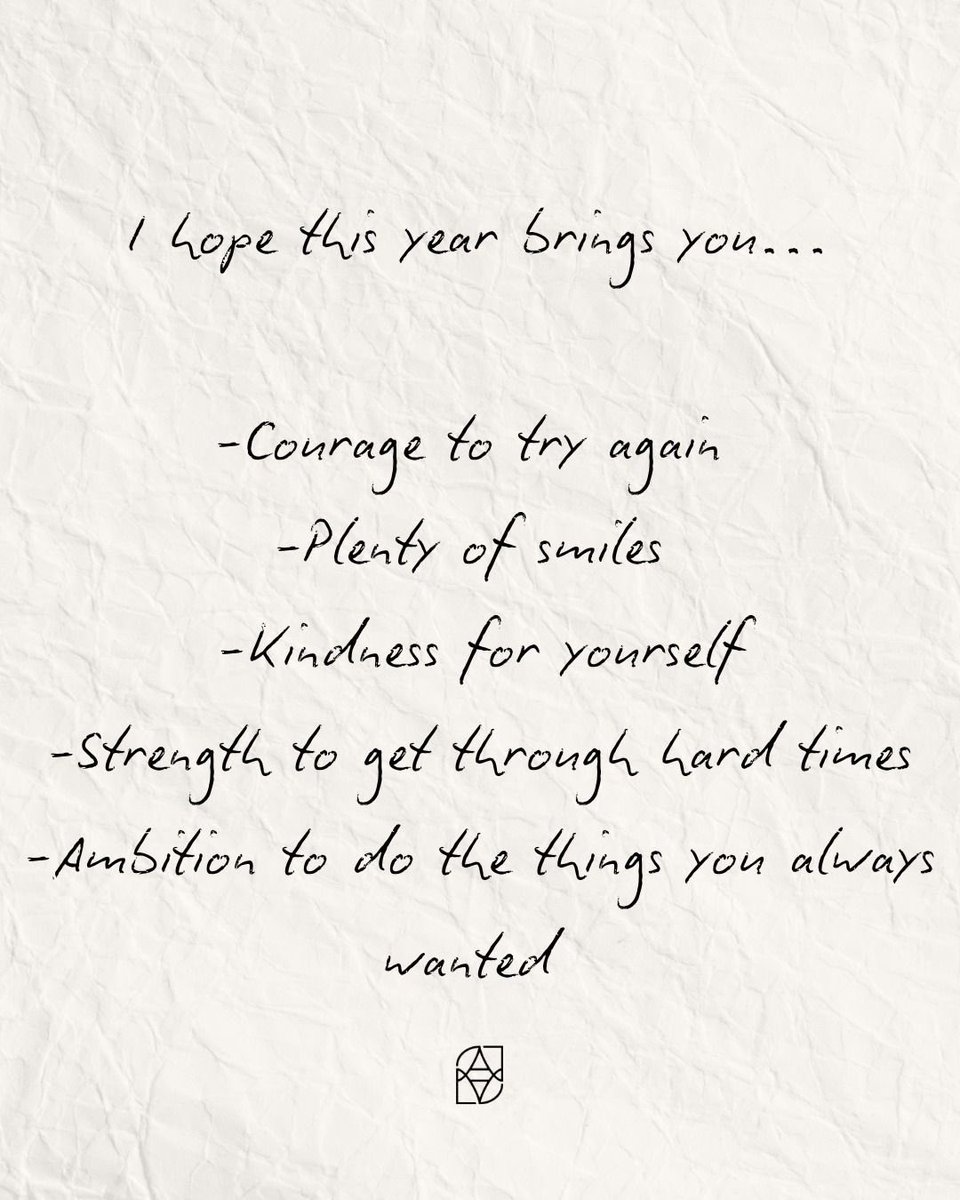 I hope this year brings you...
-Courage to try again
-Plenty of smiles
-Kindness for yourself
-Strength to get through hard times
-Ambition to do the things you always
wanted